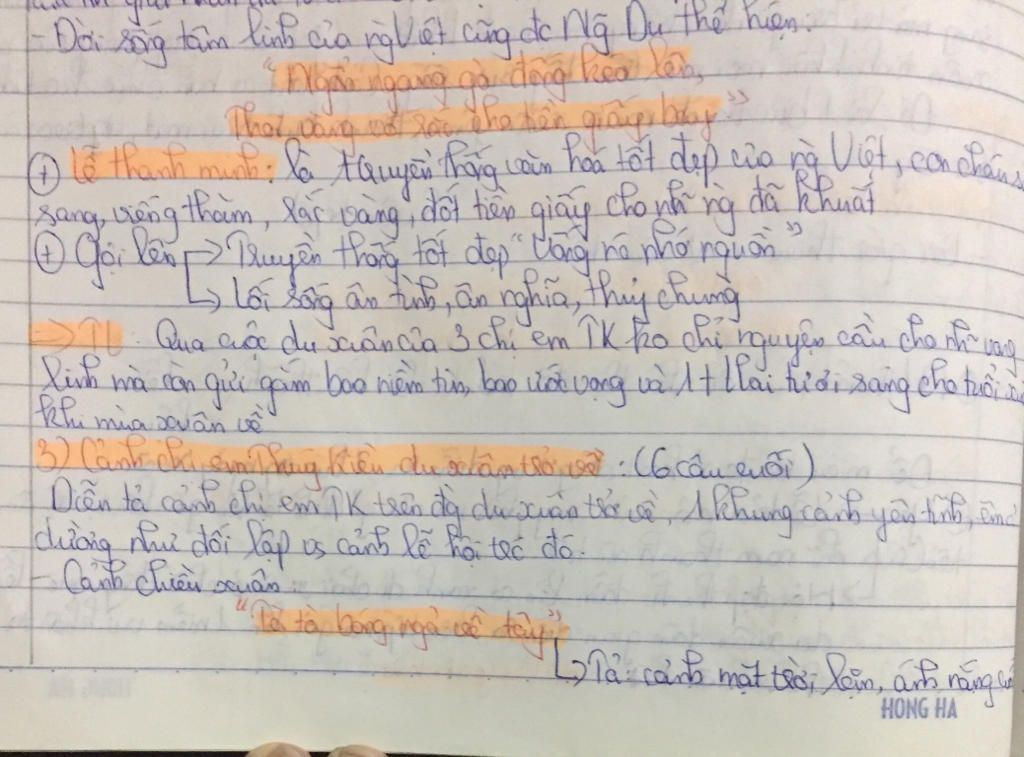 - Đời sống tâm linh của ng Việt cũng đc Ng Du thể hiện:
"Ngổn ngang gò đống kéo lên,
Thoi vàng vó rắc tro tiền giấy bay"
+ Lễ thanh minh: là truyền thống văn hoá tốt đẹp của ng Việt, con cháu
sang, viếng thăm, rắc vàng, đốt tiền giấy cho nh~ ng đã khuất
+ Gợi lên → Truyền thống tốt đẹp "Uống nc nhớ nguồn"
↳ Lối sống ân tình, ân nghĩa, thủy chung
→ TL: Qua cuộc du xuân của 3 chị em TK ko chỉ nguyện cầu cho nh~ vong
linh mà còn gửi gắm bao niềm tin, bao ước vọng về 1 tlai tươi sáng cho tuổi
khi mùa xuân về
3) Cảnh chị em Thúy Kiều du xuân trở về: (6 câu cuối)
Diễn tả cảnh chị em TK trên đg du xuân trở về, 1 khung cảnh yên tĩnh,
dường như đối lập vs cảnh lễ hội trc đó.
- Cảnh chiều xuân
"Tà tà bóng ngả về tây"
↳ Tả: cảnh mặt trời lặn, ánh nắng
HONG HA